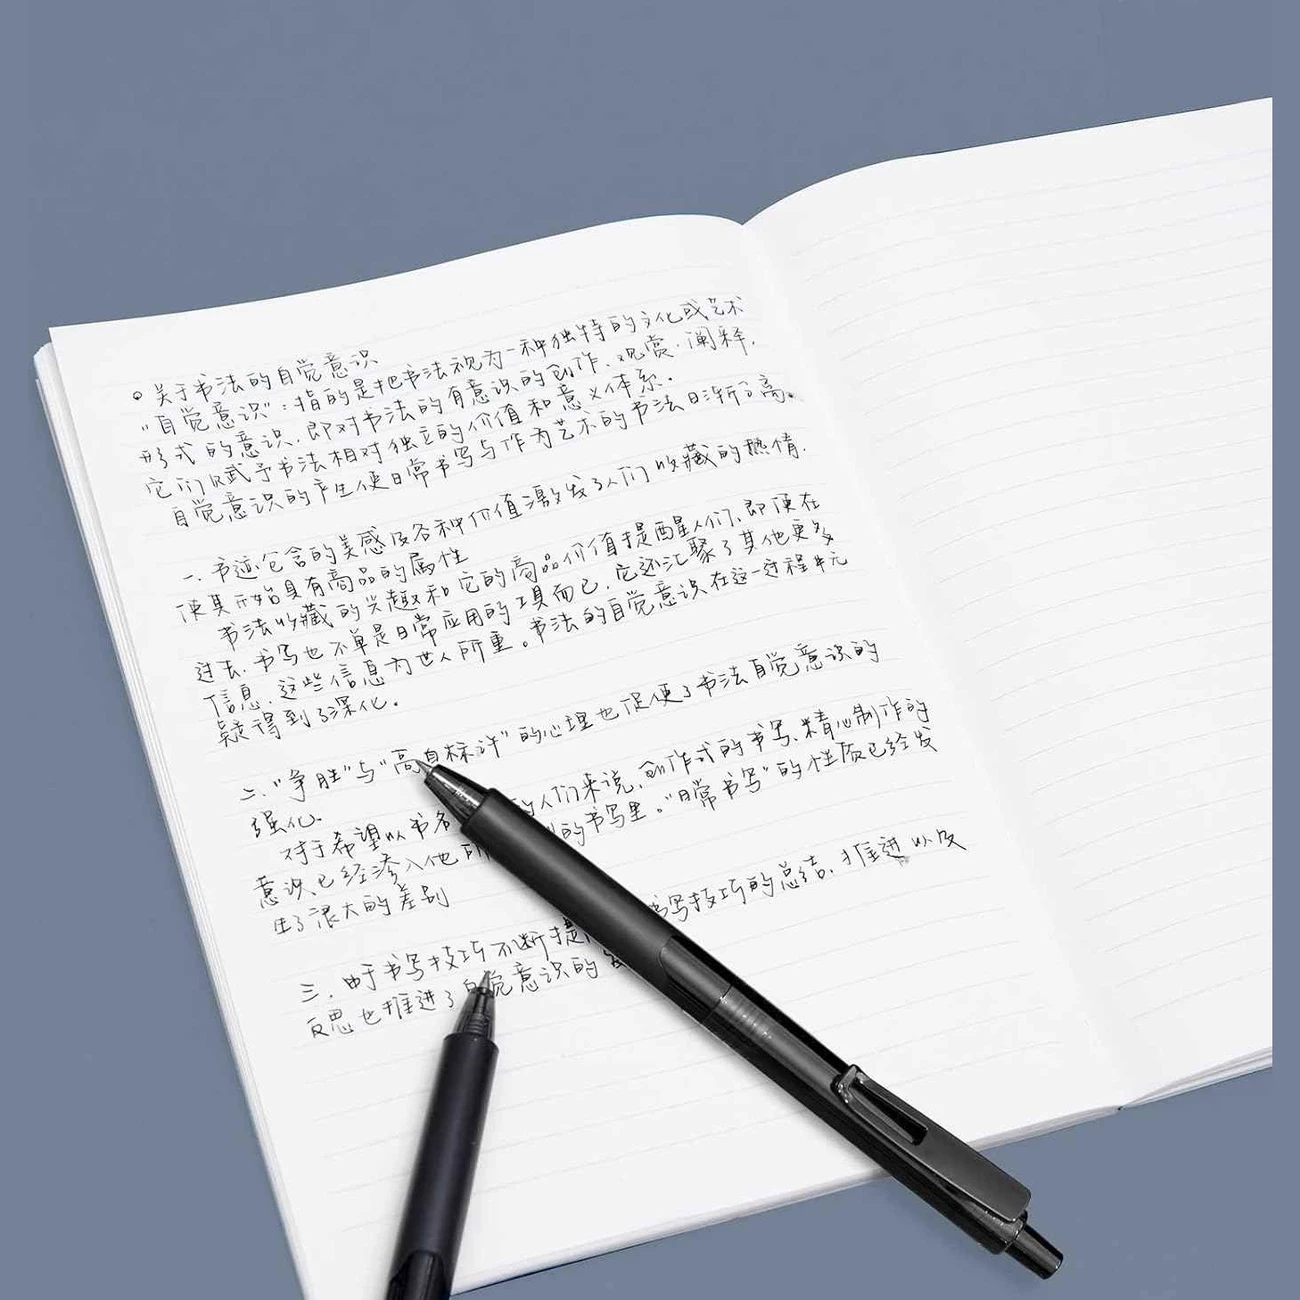 关于书法的自觉意识
“自觉意识”：指的是把书法视为一种独特的文化或艺术
形式的意识，即对书法的有意识的创作、观赏、阐释，
它们赋予书法相对独立的价值和意义体系。
自觉意识的产生使日常书写与作为艺术的书法日渐分离。
一、书迹包含的美感及各种价值激发了人们收藏的热情，
使其开始具有商品的属性
书法收藏的兴趣和它的商品价值提醒人们，即便在
过去，书写也不单是日常应用的工具而已，它还汇聚了其他更多
信息，这些信息为世人所重。书法的自觉意识在这一过程中
疑得到了深化。
二、“争胜”与“高自标许”的心理也促使了书法自觉意识的
强化。
对于希望以书名 的人们来说，创作式的书写、精心制作的
意识已经渗入他 的书写里。“日常书写”的性质已经发
生了很大的差别
三、由于书写技巧不断提 书写技巧的总结、推进以及
反思也推进了自觉意识的